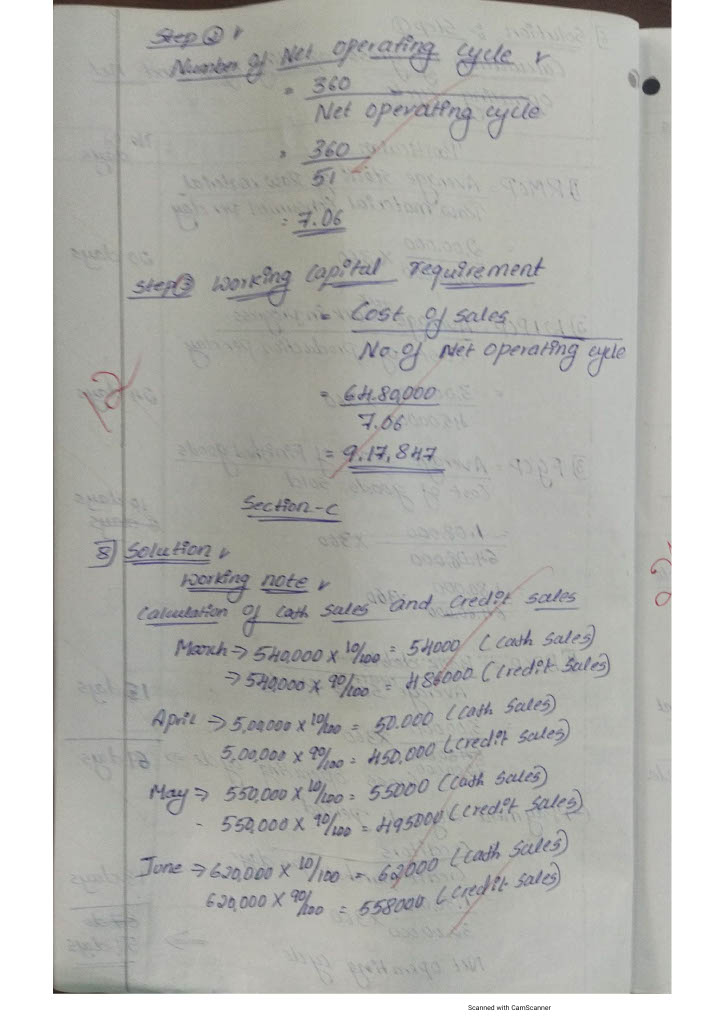 Step ②
Number of Net operating cycle
= 360
Net operating cycle
= 360
51
= 7.06
Step ③ Working Capital requirement
= Cost of sales
No. of Net operating cycle
= 64,80,000
7.06
= 9,17,847
12
Section-C
8] Solution
Working note
Calculation of cash sales and credit sales
March → 540,000 × 10/100 = 54000 (cash sales)
→ 540,000 × 90/100 = 486000 (credit sales)
April → 5,00,000 × 10/100 = 50.000 (cash sales)
5,00,000 × 90/100 = 450,000 (credit sales)
May → 550,000 × 10/100 = 55000 (cash sales)
- 550,000 × 90/100 = 495000 (credit sales)
June → 620,000 × 10/100 = 62000 (cash sales)
620,000 × 90/100 = 558000 (credit sales)
Scanned with CamScanner